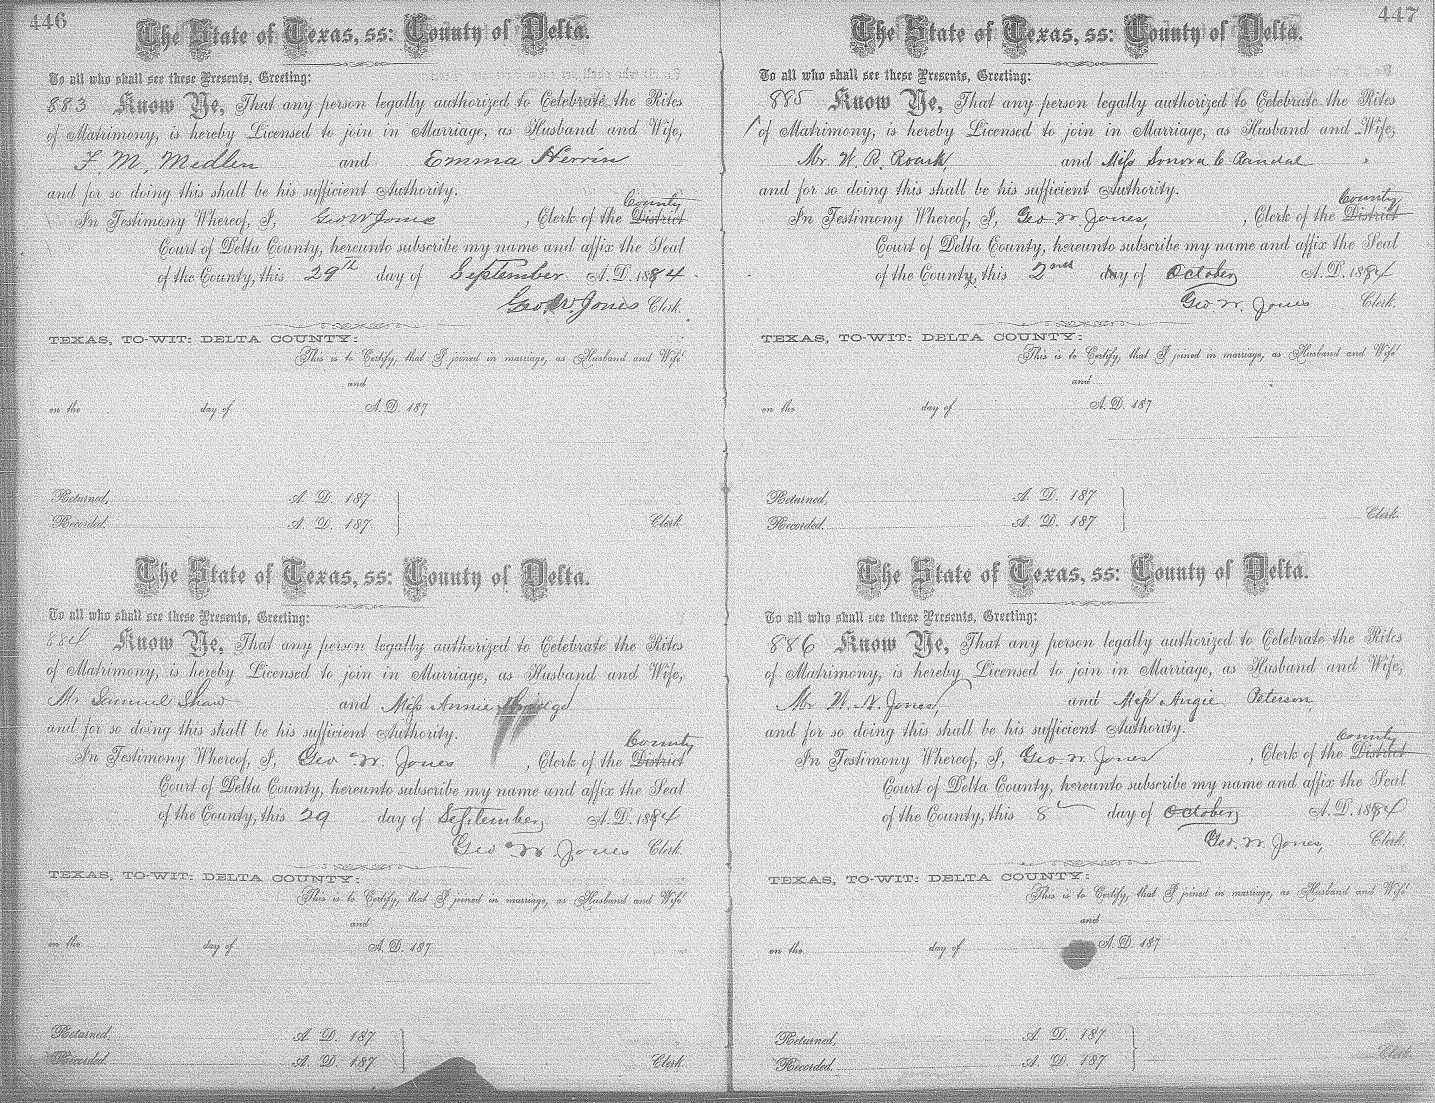 446
The State of Texas, ss: County of Delta.
To all who shall see these Presents, Greeting:
883 Know Ye, That any person legally authorized to Celebrate the Rites
of Matrimony, is hereby Licensed to join in Marriage, as Husband and Wife,
F. M. Medlen and Emma Herrin
and for so doing this shall be his sufficient Authority.
County
In Testimony Whereof, I, Geo W Jones, Clerk of the District
Court of Delta County, hereunto subscribe my name and affix the Seal
of the County, this 29th day of September A. D. 1884.
Geo. W. Jones Clerk.
TEXAS, TO-WIT: DELTA COUNTY:
This is to Certify, that I joined in marriage, as Husband and Wife
and
on the day of A. D. 187
Returned, A. D. 187
Recorded. A. D. 187 Clerk.
The State of Texas, ss: County of Delta.
To all who shall see these Presents, Greeting:
884 Know Ye, That any person legally authorized to Celebrate the Rites
of Matrimony, is hereby Licensed to join in Marriage, as Husband and Wife,
Mr Samuel Shaw and Miss Annie
and for so doing this shall be his sufficient Authority.
County
In Testimony Whereof, I, Geo W. Jones, Clerk of the District
Court of Delta County, hereunto subscribe my name and affix the Seal
of the County, this 29 day of September, A. D. 1884
Geo. W. Jones Clerk.
TEXAS, TO-WIT: DELTA COUNTY:
This is to Certify, that I joined in marriage, as Husband and Wife
and
on the day of A. D. 187
Returned, A. D. 187
Recorded. A. D. 187 Clerk.
447
The State of Texas, ss: County of Delta.
To all who shall see these Presents, Greeting:
885 Know Ye, That any person legally authorized to Celebrate the Rites
of Matrimony, is hereby Licensed to join in Marriage, as Husband and Wife,
Mr. W. R. Roark, and Miss Sonora C Randal
and for so doing this shall be his sufficient Authority.
County
In Testimony Whereof, I, Geo. W. Jones, Clerk of the District
Court of Delta County, hereunto subscribe my name and affix the Seal
of the County, this 2nd day of October A. D. 1884
Geo. W. Jones Clerk.
TEXAS, TO-WIT: DELTA COUNTY:
This is to Certify, that I joined in marriage, as Husband and Wife
and
on the day of A. D. 187
Returned, A. D. 187
Recorded. A. D. 187 Clerk.
The State of Texas, ss: County of Delta.
To all who shall see these Presents, Greeting:
886 Know Ye, That any person legally authorized to Celebrate the Rites
of Matrimony, is hereby Licensed to join in Marriage, as Husband and Wife,
Mr. Jones, and Miss Angie Peterson
and for so doing this shall be his sufficient Authority.
County
In Testimony Whereof, I, Geo. W. Jones, Clerk of the District
Court of Delta County, hereunto subscribe my name and affix the Seal
of the County, this 8 day of October, A. D. 1884
Geo. W. Jones, Clerk.
TEXAS, TO-WIT: DELTA COUNTY:
This is to Certify, that I joined in marriage, as Husband and Wife
and
on the day of A. D. 187
Returned, A. D. 187
Recorded. A. D. 187 Clerk.